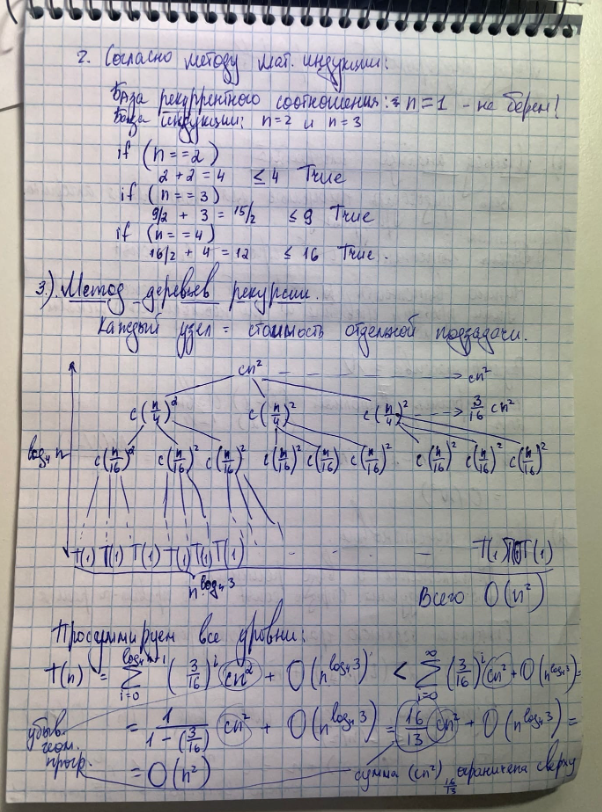 2. Согласно методу мат. индукции:
База рекуррентного соотношения: n=1 - не берем!
База индукции: n=2 и n=3
if (n==2)
2+2=4 ≤4 True
if (n==3)
9/2 + 3 = 15/2 ≤9 True
if (n==4)
16/2 + 4 = 12 ≤ 16 True.
3) Метод деревьев рекурсии.
Каждый узел = стоимость отдельной подзадачи.
cn² → cn²
c(n/4)² c(n/4)² c(n/4)² → 3/16 cn²
log₄ n c(n/16)² c(n/16)² c(n/16)² c(n/16)² c(n/16) c(n/16)² c(n/16)² c(n/16)² c(n/16)²
T(1) T(1) T(1) T(1) T(1) T(1) - - - T(1) T(1) T(1)
n^log₄3 Всего O(n²)
Просуммируем все уровни:
T(n) = ∑ i=0 log₄n-1 (3/16)^i cn² + O(n^log₄3) < ∑ i=0 ∞ (3/16)^i cn² + O(n^log₄3) =
убыв. геом. прогр. = 1/(1-(3/16)) cn² + O(n^log₄3) = 16/13 cn² + O(n^log₄3) =
= O(n²) сумма (cn²) 16/13 ограничена сверху